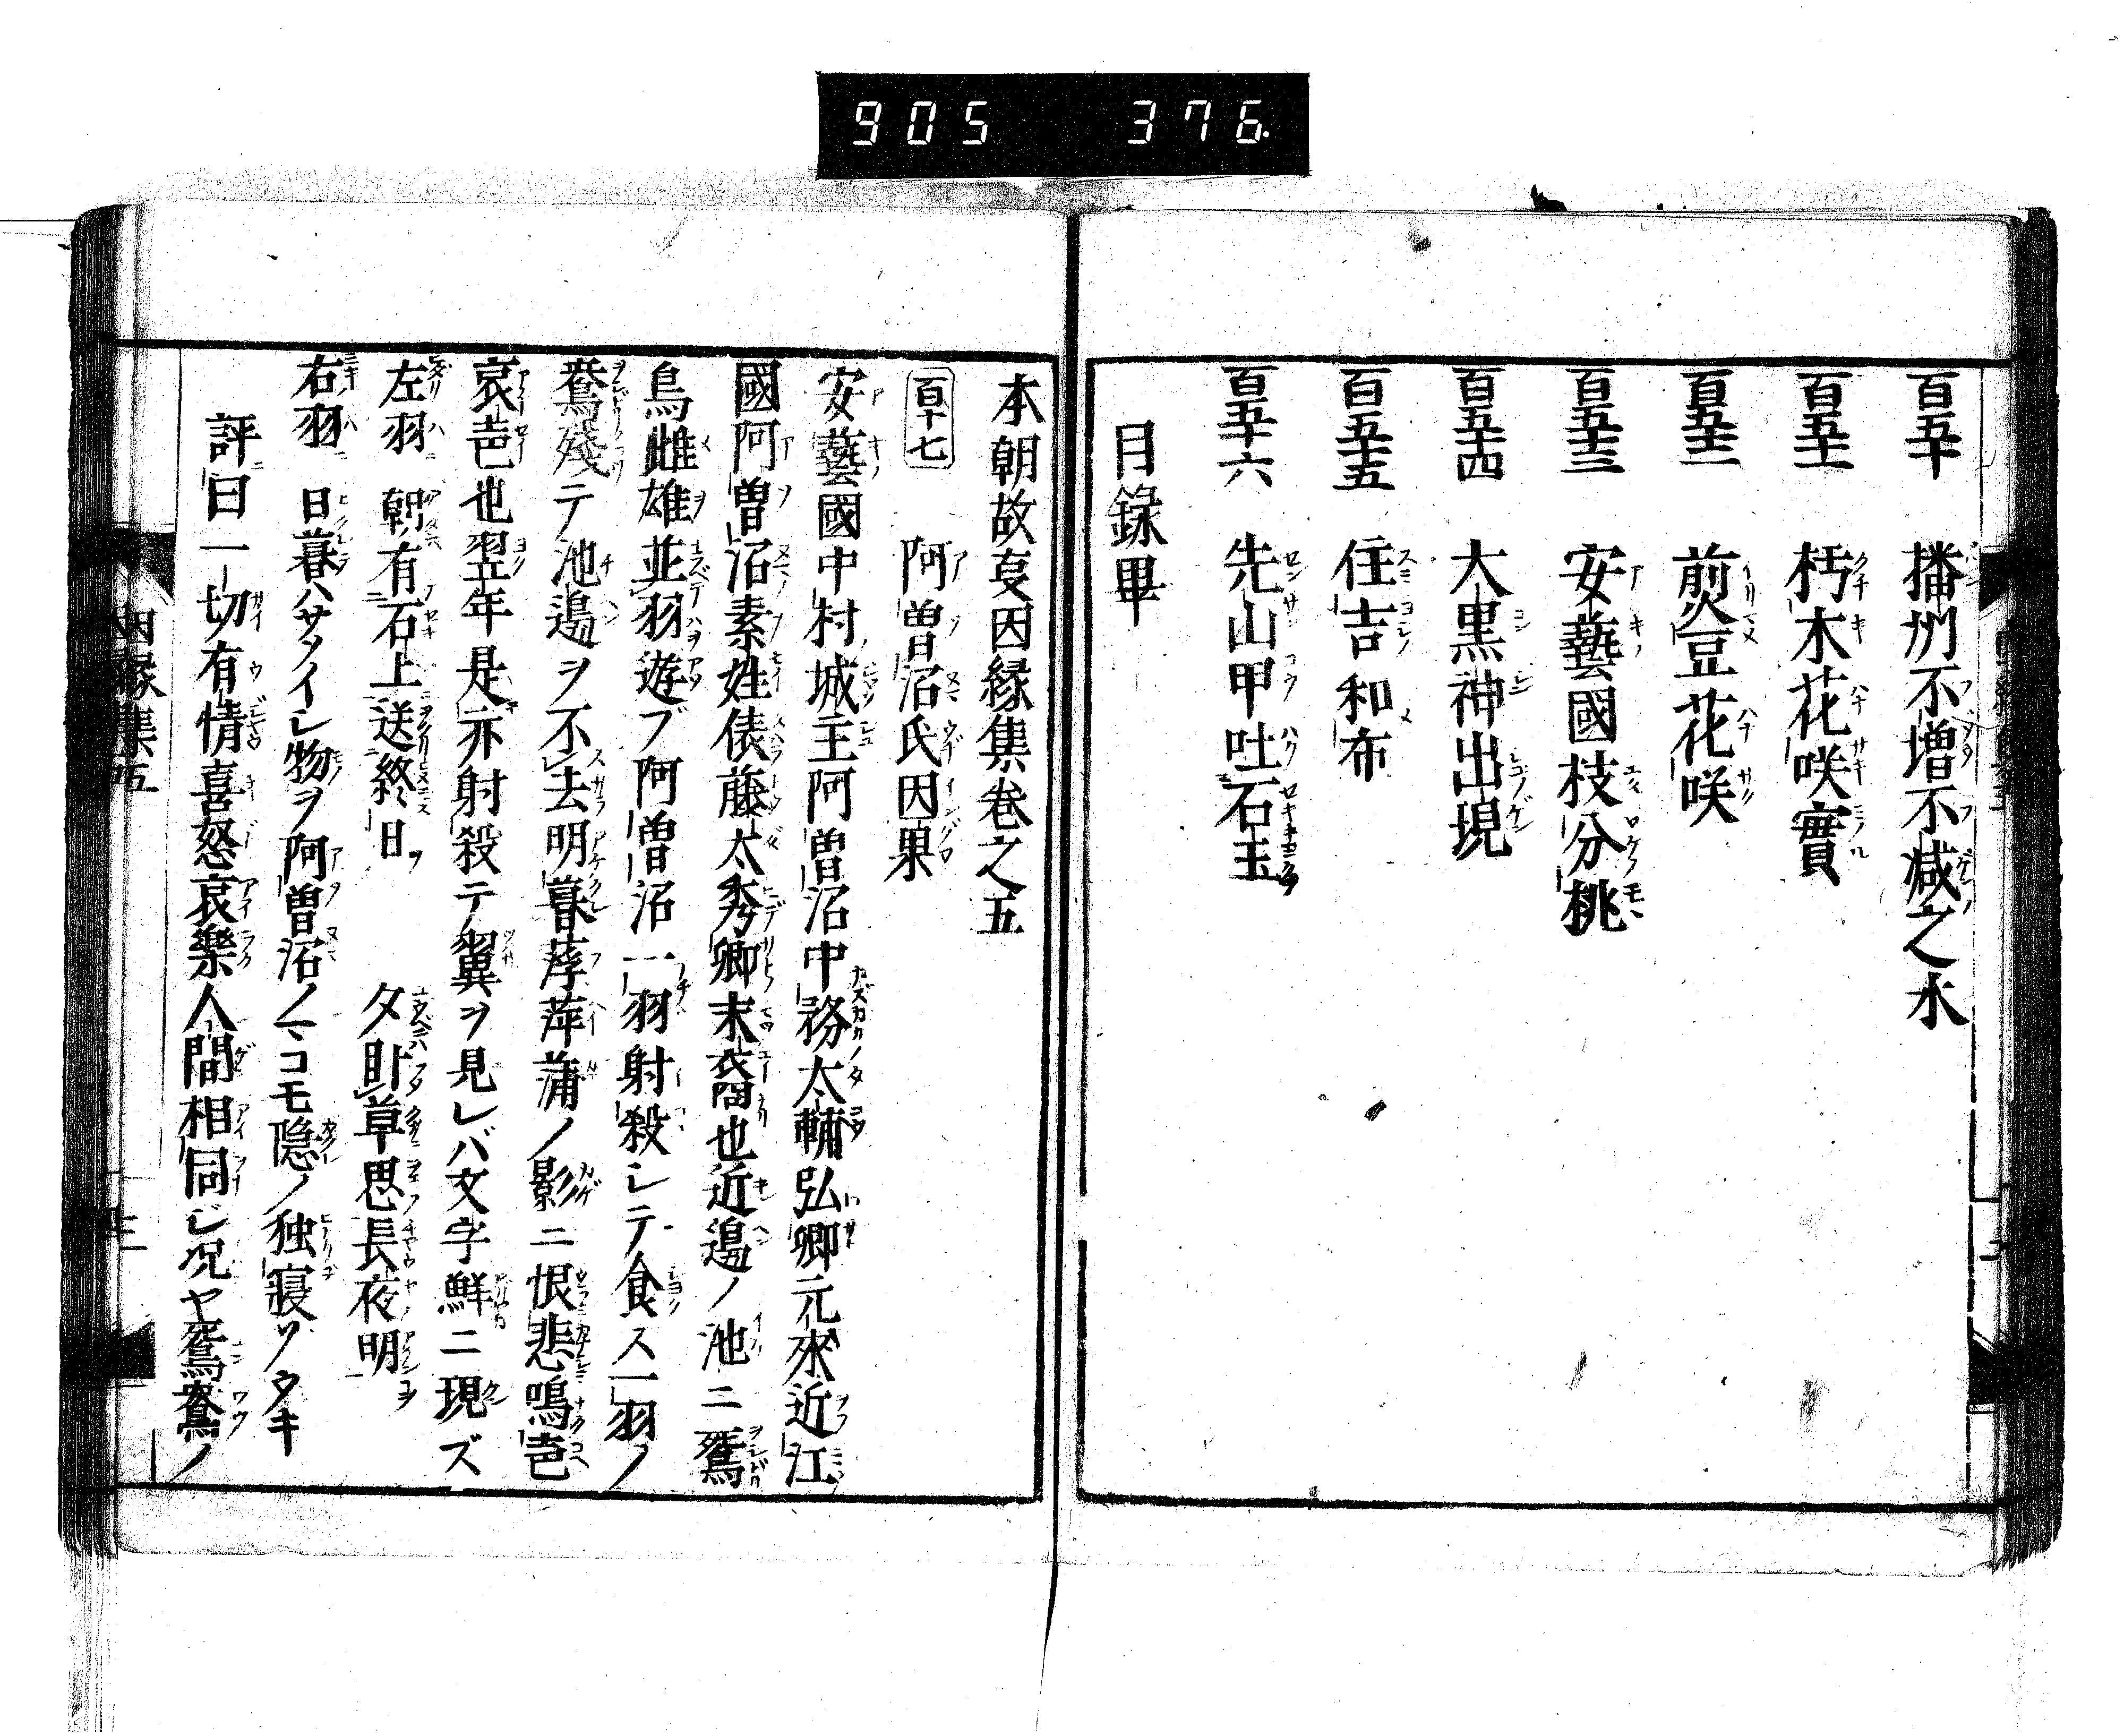 905 376
百五十 播州不増不減之水
百五十一 朽木花咲實
百五十二 煎豆花咲
百五十三 安藝國枝分桃
百五十四 大黒神出現
百五十五 住吉和布
百五十六 先山甲吐石玉
目錄畢
本朝故㕝因縁集卷之五
百十七 阿曽沼氏因果
安藝國中村城主阿曽沼中務太輔弘卿元來近江
國阿曽沼素姓俵藤太秀卿末裔也近邉ノ池ニ鴛
鳥雌雄並羽遊ブ阿曽沼一羽射殺シテ食ス一羽ノ
鴦殘テ池邉ヲ不去明暮萍蒲ノ影ニ恨悲鳴㐯
哀㐯也翌年是亦射殺テ翼ヲ見レバ文字鮮ニ現ズ
左羽 朝有石上送終日 夕卧草思長夜明
右羽 日暮ハサソイシ物ヲ阿曽沼ノマコモ隠ノ独寝ソウタキ
評曰一切有情喜怒哀樂人間相同じ况ヤ鴛鴦ノ
因縁集五